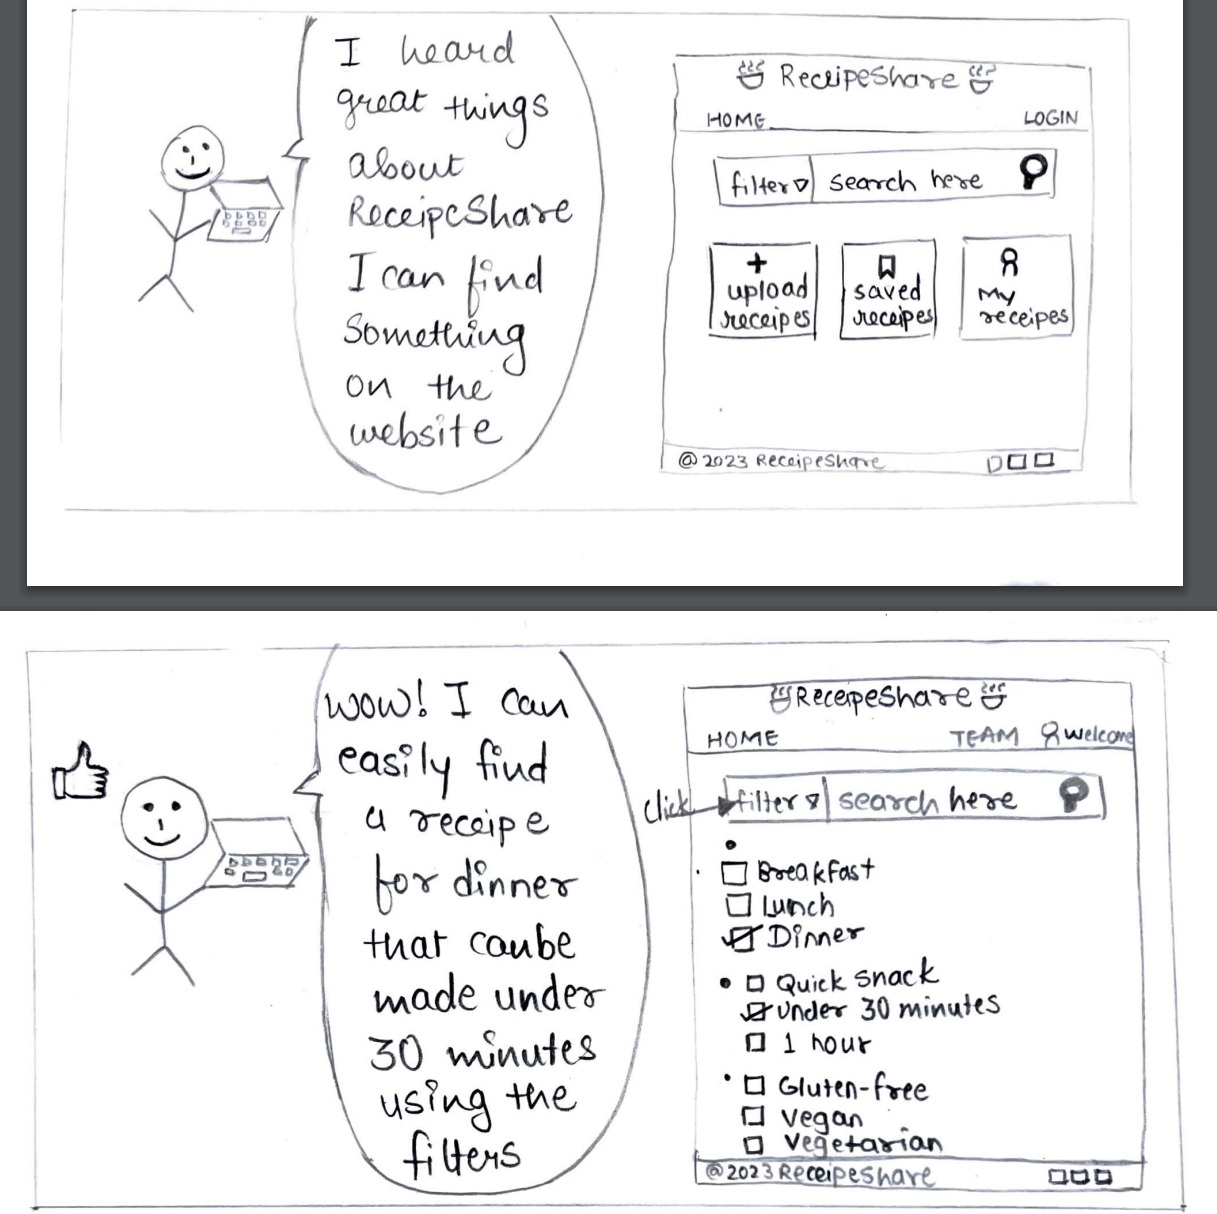 I heard
great things
about
ReceipeShare
I can find
something
on the
website
ReceipeShare
HOME LOGIN
filter search here
+
upload
receipes
saved
receipes
My
receipes
@ 2023 ReceipeShare
WOW! I can
easily find
a receipe
for dinner
that canbe
made under
30 minutes
using the
filters
ReceipeShare
HOME TEAM Welcome
click filter search here
Breakfast
Lunch
Dinner
Quick snack
under 30 minutes
1 hour
Gluten-free
vegan
vegetarian
@2023 ReceipeShare